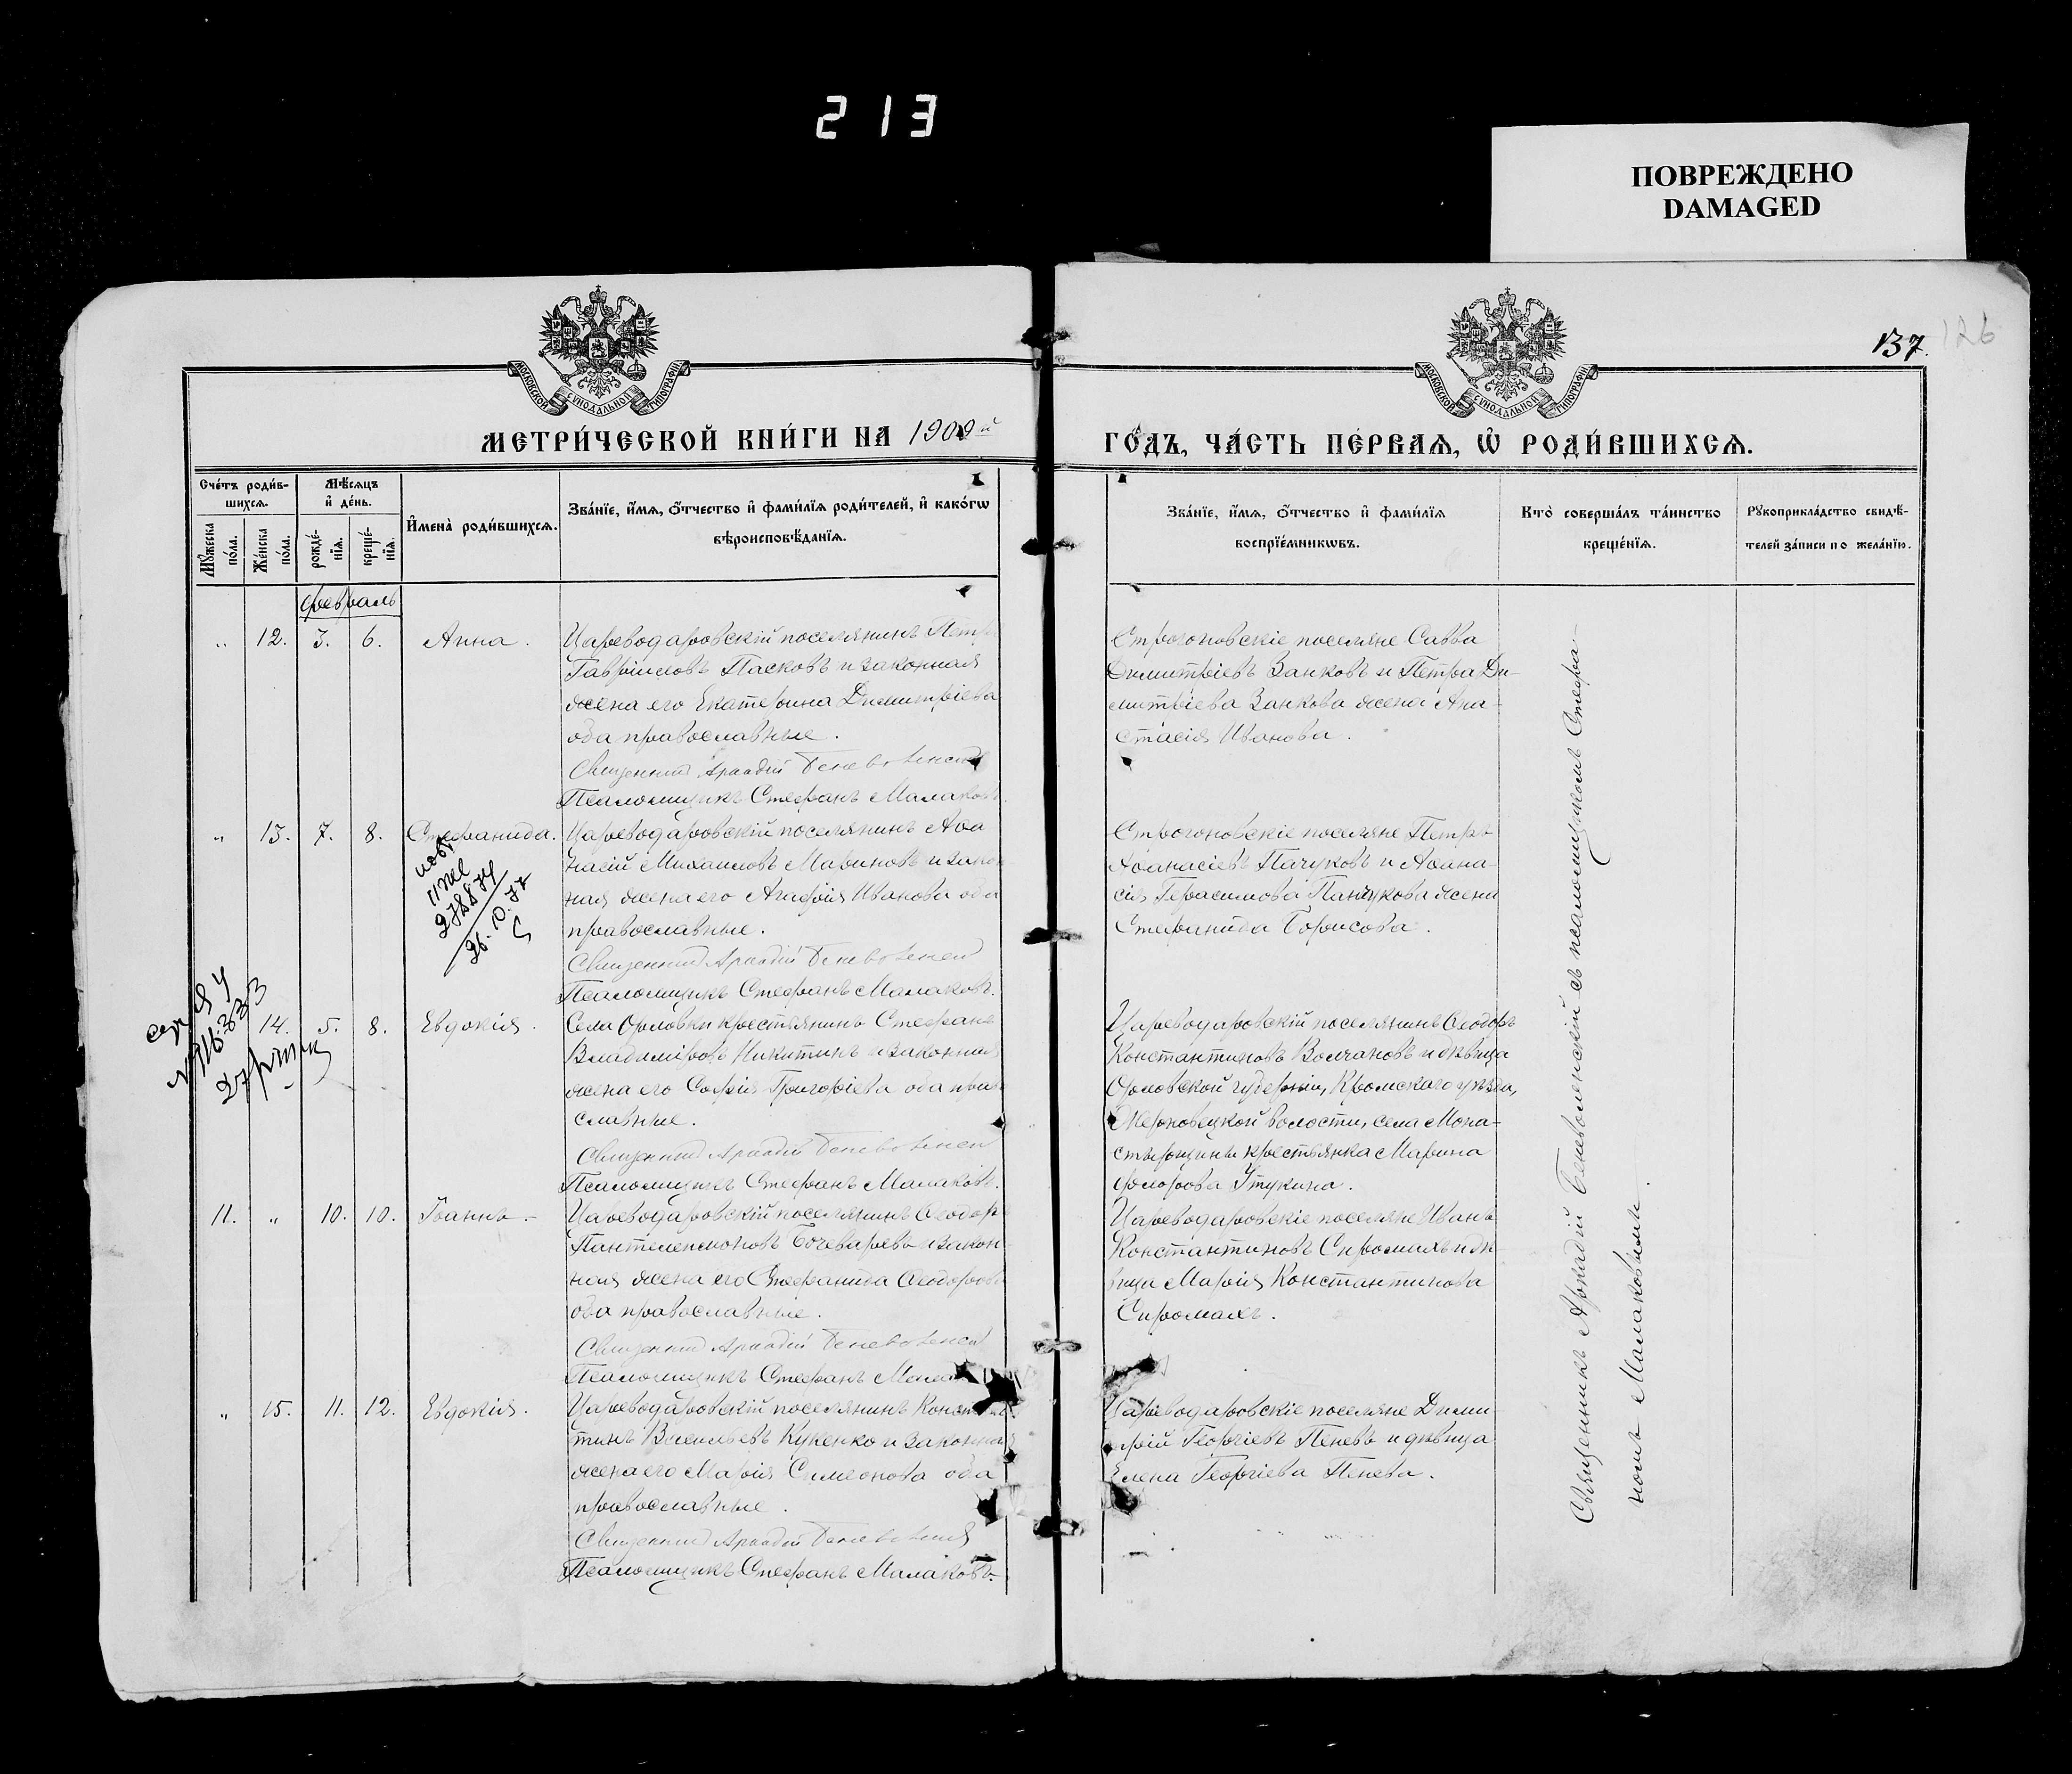 213
ПОВРЕЖДЕНО
DAMAGED
137.
126
МОСКОВСКОЙ СѴНОДАЛЬНОЙ ТИПОГРАФІИ
МОСКОВСКОЙ СѴНОДАЛЬНОЙ ТИПОГРАФІИ
МЕТРИ́ЧЕСКОЙ КНИ́ГИ НА 1909й
ГО́ДЪ, ЧА́СТЬ ПЕ́РВАѦ, Ѡ҆ РОДИ́ВШИХСѦ.
Сче́тъ роди́в-
шихсѧ.
Мꙋ́жеска по́ла.
Же́нска по́ла.
Мѣ́сѧцъ
и҆ де́нь.
рожде́-
нїѧ.
креще́-
нїѧ.
И҆мена̀ роди́вшихсѧ.
Зва́нїе, и҆́мѧ, ѻ҆́тчество и҆ фами́лїѧ роди́телей, и҆ како́гѡ
вѣроисповѣ́данїѧ.
Зва́нїе, и҆́мѧ, ѻ҆́тчество и҆ фами́лїѧ
воспрїе́мникѡвъ.
Кто̀ соверша́лъ та́инство
креще́нїѧ.
Рꙋкоприкла́дство свидѣ́-
телей за́писи по жела́нїю.
февраль
„ 12. 3. 6. Анна.
Цареводаровскій поселянинъ Петръ
Гавріиловъ Пасковъ и законная
жена его Екатерина Димитріева
оба православные.
Священник Аркадій Беневоленскій
Псаломщикъ Стефанъ Малаковъ.
Строгоновскіе поселяне Савва
Димитріевъ Занковъ и Петра Ди-
митріева Занкова жена Ана-
стасія Иванова.
„ 13. 7. 8. Стефанида.
27.88.74
26.10.77
Цареводаровскій поселянинъ Аѳа
насій Михаиловъ Мариновъ и закон
ная жена его Агафія Иванова оба
православные.
Священник Аркадій Беневоленскій
Псаломщикъ Стефанъ Малаковъ.
Строгоновскіе поселяне Петръ
Аѳанасіевъ Пачуковъ и Аѳана-
сія Герасимова Панчукова жена
Стефанида Борисова.
14. 5. 8. Евдокія.
Села Орловки крестьянинъ Стефанъ
Владиміровъ Никитинъ и законная
жена его Софія Григоріева оба прав
славные.
Священник Аркадій Беневоленскій
Псаломщикъ Стефанъ Малаковъ.
Цареводаровскій поселянинъ Ѳеодоръ
Константиновъ Волчановъ и дѣвица
Орловской губерніи, Кромскаго уѣзда,
волости, села Мона-
стырщины крестьянка Марина
Утукина.
11. „ 10. 10. Іоаннъ.-
Цареводаровскій поселянинъ Ѳеодоръ
Пантелеимоновъ Бочеваровъ и закон
ная жена его Стефанида Ѳеодорова
оба православные.
Священник Аркадій Беневоленскій
Псаломщикъ Стефанъ
Цареводаровскіе поселяне Иванъ
Константиновъ Сиромахъ и дѣ
вица Марія Константинова
Сиромахъ.
„ 15. 11. 12. Евдокія.
Цареводаровскій поселянинъ Констан
тинъ Васильевъ Куженко и законная
жена его Марія Симеонова оба
православные.
Священник Аркадій Беневоленскій
Псаломщикъ Стефанъ Малаковъ.
Цареводаровскіе поселяне Дими
трій Георгіевъ Пеневъ и дѣвица
Елена Георгіева Пенева.
Священникъ Аркадій Беневоленскій съ псаломщикомъ Стефа-
номъ Малаковымъ.